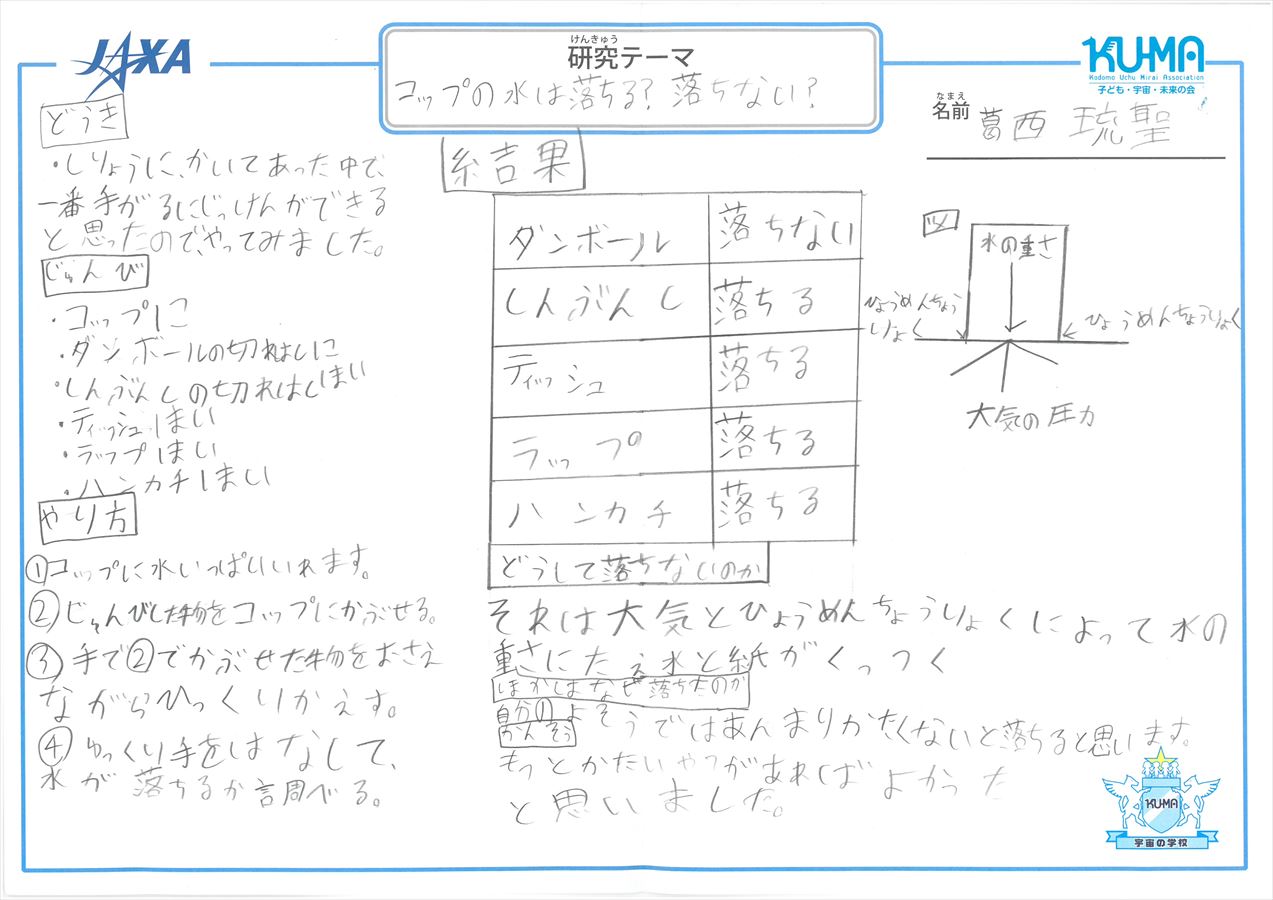 JAXA
けんきゅう
研究テーマ
コップの水は落ちる?落ちない?
KU-MA
Kodomo Uchu Mirai Association
子ども・宇宙・未来の会
なまえ
名前 葛西 琉聖
どうき
・しりょうに、かいてあった中で、
一番手がるにじっけんができる
と思ったので、やってみました。
じゅんび
・コップ1こ
・ダンボールの切れはし1こ
・しんぶんしの切れはし1まい
・ティッシュ1まい
・ラップ1まい
・ハンカチ1まい
やり方
①コップに水いっぱいいれます。
②じゅんびした物をコップにかぶせる。
③手で②でかぶせた物をおさえ
ながらひっくりかえす。
④ゆっくり手をはなして、
水が落ちるか調べる。
結果
ダンボール 落ちない
しんぶんし 落ちる
ティッシュ 落ちる
ラップ 落ちる
ハンカチ 落ちる
どうして落ちないのか
それは大気とひょうめんちょうりょくによって水の
重さにたえ水と紙がくっつく
ほかはなぜ落ちたのか
自分のよそうではあんまりかたくないと落ちると思います。
かんそう
もっとかたいやつがあればよかった
と思いました。
図
水の重さ
ひょうめんちょう
りょく
ひょうめんちょうりょく
大気の圧力
KU-MA
宇宙の学校